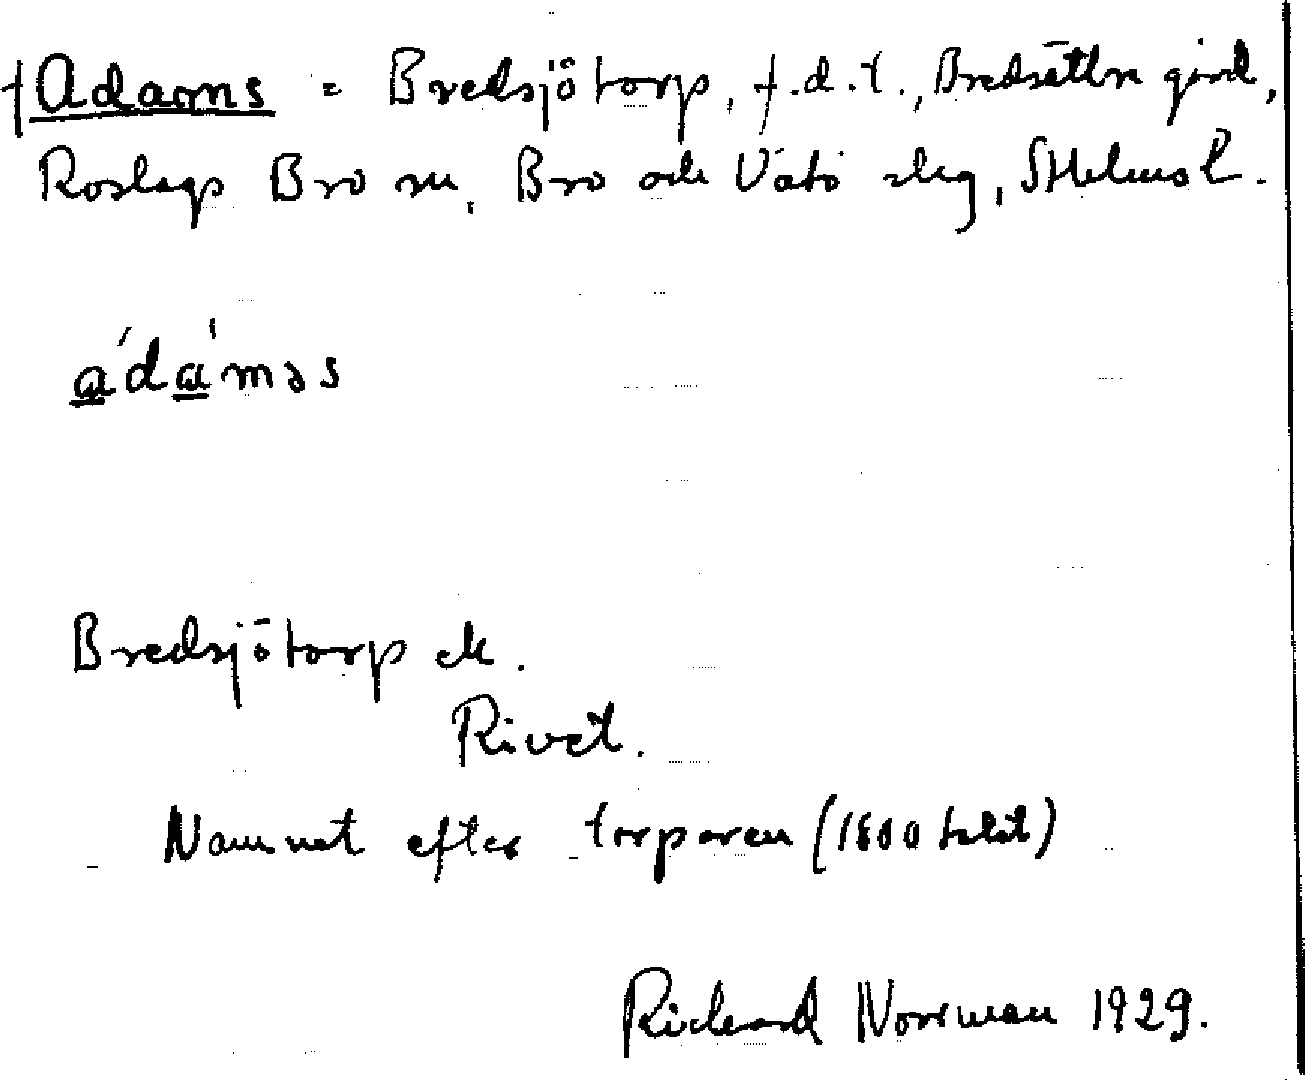 †Adams = Bredsjötorp, f.d.t., Bredsättra gård,
Roslags Bro sn, Bro och Vätö slg, Sthlms l.
a´da´məs
Bredsjötorp ek.
Rivet.
Namnet efter torparen (1800 talet)
Richard Norrman 1929.